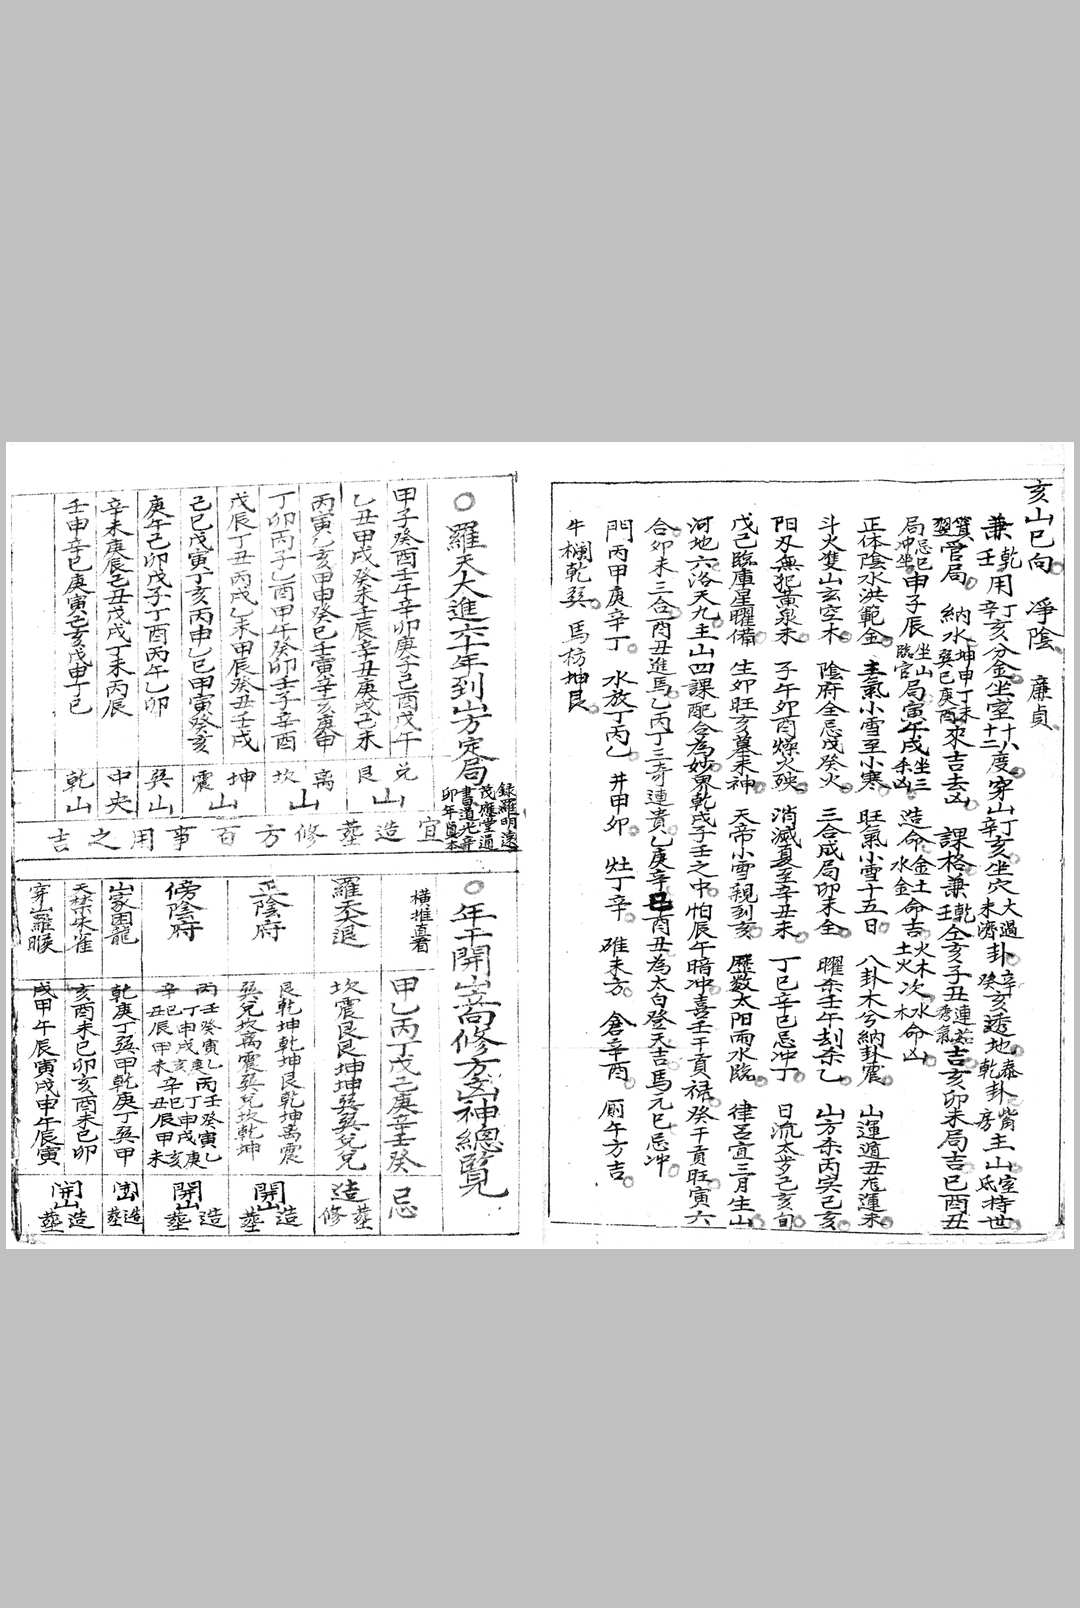 亥山巳向 淨陰 廉貞
兼乾壬用丁亥辛亥分金坐室十八度十二度穿山丁亥辛亥坐穴大過未濟卦辛亥癸亥透地泰卦乾卦觜主房山室底持世
箕翌管局 納水坤申丁未巽巳庚酉來吉去凶 課格兼乾壬仝亥子丑連茹秀氣吉亥卯未局吉巳酉丑
局忌巳冲坐申子辰坐山臨官局寅午戌坐三杀凶 造命金土命吉火木次水命凶
水金 土火木
正体陰水洪範金 主氣小雪至小寒 旺氣小雪十五日 八卦木兮納卦震 山運遁丑尅運未
斗火雙山玄空木 陰府全忌戊癸火 三合成局卯未全 曜杀壬午刦杀乙 山方杀丙吳己亥
陽刃無犯黃泉未 子午卯酉燥火殃 消滅夏至辛丑未 丁巳辛巳忌冲丁 日流太歲己亥旬
戊己臨庫星曜備 生卯旺亥墓未神 天帝小雪親到亥 曆数太阳雨水臨 律呂宜三月生山
河地六洛天九主山四課配合為妙臬乾戌子壬之中怕辰午暗冲喜壬干貢禄癸干貢旺寅六
合卯未三合酉丑進馬乙丙丁三奇連貴乙庚辛巳酉丑為太白登天吉馬元巳忌冲
門丙甲庚辛丁 水放丁丙乙 井甲卯 灶丁辛 碓未方 倉辛酉 厠午方吉
牛欄乾巽 馬枋坤艮
○羅天大進六十年到山方定局
錄羅明遠
茂應堂通
書道光辛
卯年真本
甲子癸酉壬午辛卯庚子己酉戊午 兌山
乙丑甲戌癸未壬辰辛丑庚戌己未 艮山
丙寅乙亥甲申癸巳壬寅辛亥庚申 離山
丁卯丙子乙酉甲午癸卯壬子辛酉 坎山
戊辰丁丑丙戌乙未甲辰癸丑壬戌 坤山
己巳戊寅丁亥丙申乙巳甲寅癸亥 震山
庚午己卯戊子丁酉丙午乙卯 巽山
辛未庚辰己丑戊戌丁未丙辰 中央
壬申辛巳庚寅己亥戊申丁巳 乾山
宜造葬修方百事用之吉
○年干開山萄修方凶神總覧
橫推直看 甲乙丙丁戊己庚辛壬癸 忌
羅天退 坎震艮艮坤坤巽巽兌兌 造葬修
正陰府 艮乾坤乾坤艮乾坤离震
巽兌坎离震巽兌坎乾坤 開山造葬
傍陰府 丙壬癸寅乙丙壬癸寅乙
丁申戌庚丁申戌庚
辛巳亥辛巳亥
丑辰甲未丑辰甲未 開山造葬
山家困龍 乾庚丁巽甲乾庚丁巽甲 開山造葬
天禁朱雀 亥酉未巳卯亥酉未巳卯 開山造葬
穿山羅睺 戌甲午辰寅戌申午辰寅